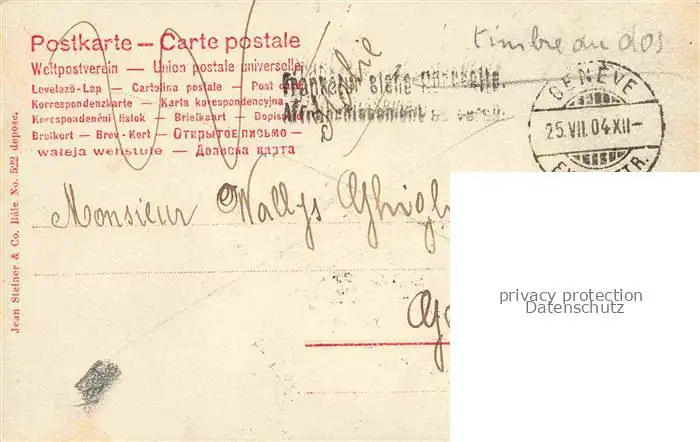 timbre au dos
Postkarte — Carte postale
Weltpostverein — Union postale universelle
Levelező-Lap — Cartolina postale — Post card
Korrespondenzkarte — Karta korespondencyjna
Korespondenční listek — Brielkaart — Dopisnice
Breikort — Brev-Kort — Открытое письмо —
wateja wehstule — Дописна карта
Frankatur siehe Rückseite.
Affranchissement au verso.
GENÈVE
25.VII.04 XII—
Jean Steiner & Co. Bâle No. 522 depose.
Monsieur Wallys
privacy protection
Datenschutz